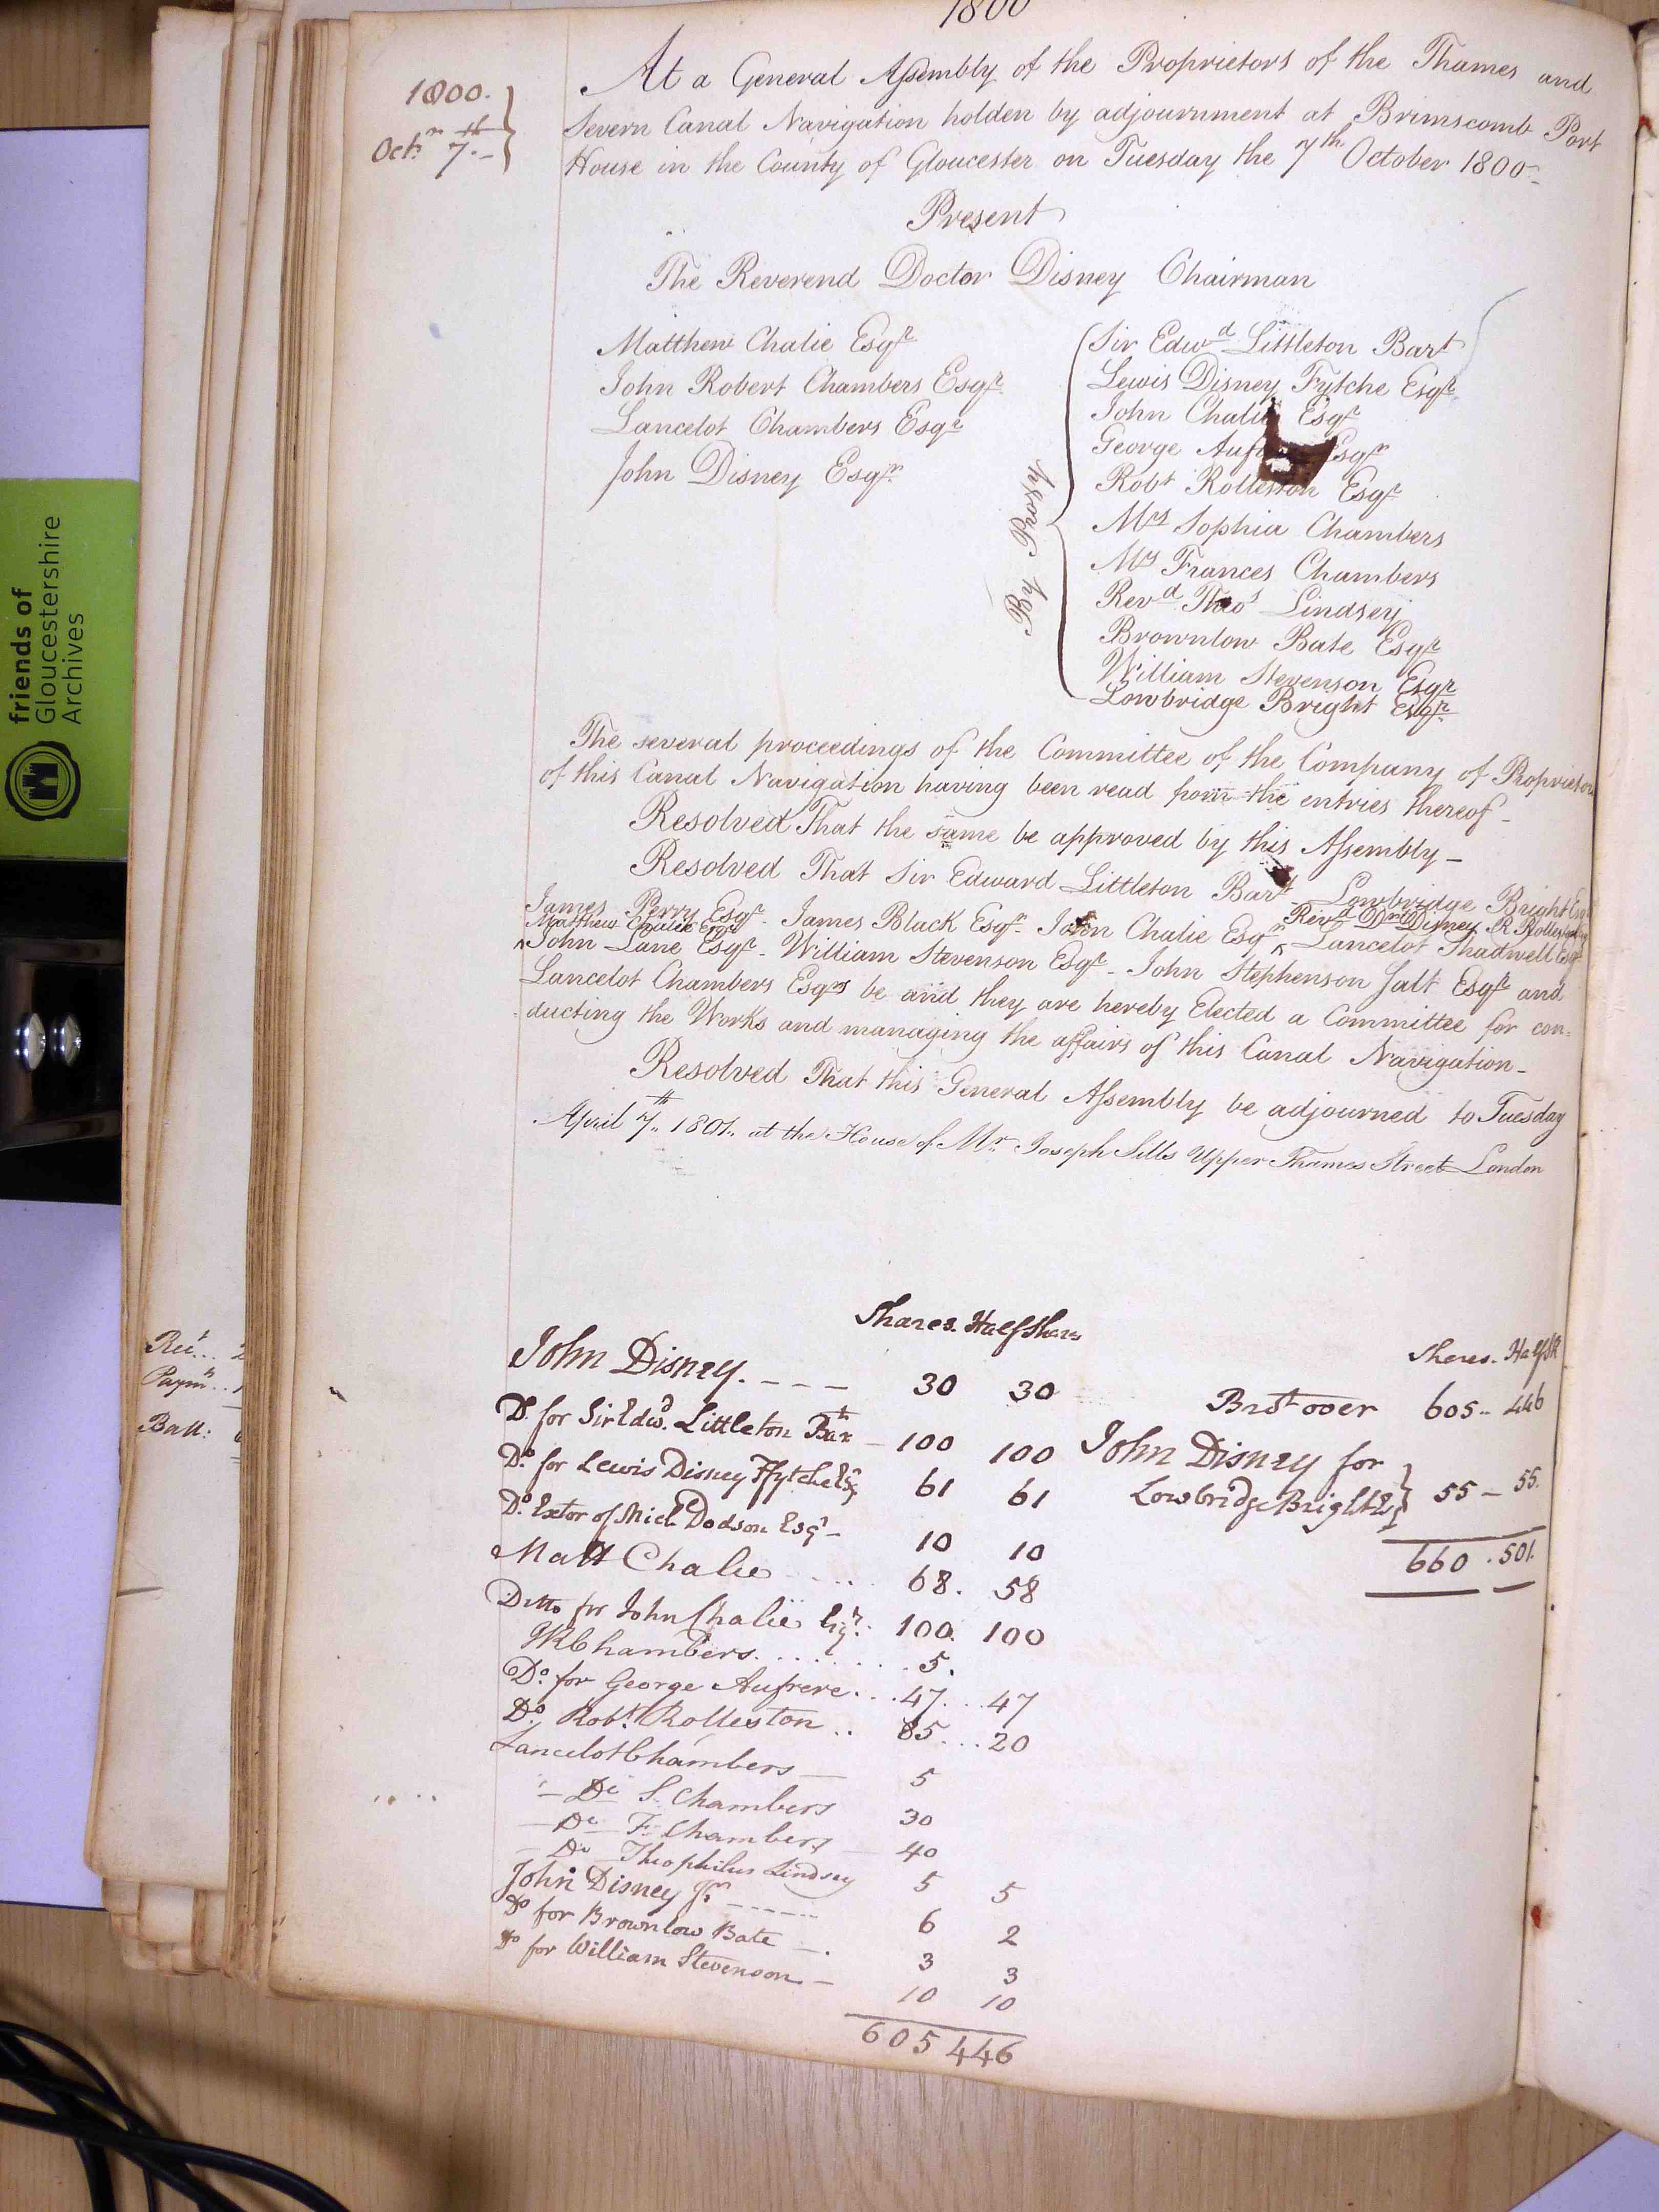 1800
1800.
Octr 7th
At a General Assembly of the Proprietors of the Thames and
Severn Canal Navigation holden by adjournment at Brimscomb Port
House in the County of Gloucester on Tuesday the 7th October 1800
Present
The Reverend Doctor Disney Chairman
Matthew Chalie Esqr
John Robert Chambers Esqr
Lancelot Chambers Esqr
John Disney Esqr
By Proxy
Sir Edwd Littleton Bart
Lewis Disney Fytche Esqr
John Chalie Esqr
George Esqr
Robt Rolleston Esqr
Mrs Sophia Chambers
Mrs Frances Chambers
Revd Theos Lindsey
Brownlow Bate Esqr
William Stevenson Esqr
Lowbridge Bright Esqr
The several proceedings of the Committee of the Company of Proprietors
of this Canal Navigation having been read from the entries thereof
Resolved That the same be approved by this Assembly
Resolved That Sir Edward Littleton Bart Lowbridge Bright Esqr
James Perry Esqr. James Black Esqr. John Chalie Esqr Revd Dr Disney R Rolleston
Matthew Chalie Esqr
John Lane Esqr. William Stevenson Esqr. John Stephenson Salt Esqr and
Lancelot Shadwell Esqr
Lancelot Chambers Esqrs be and they are hereby Elected a Committee for con=
ducting the Works and managing the affairs of this Canal Navigation
Resolved That this General Assembly be adjourned to Tuesday
April 7th 1801. at the House of Mr Joseph Sills Upper Thames Street London
Shares. Half Shares
John Disney. 30 30
Do for Sir Edwd. Littleton Bart 100 100
Do for Lewis Disney Ffytche Esq 61 61
Do Extor of Mich Dodson Esqr 10 10
Matt Chalie 68. 58
Ditto for John Chalie Esqr. 100. 100
JR Chambers 5.
Do for George Aufrere 47 47
Do Robt. Rolleston 85 20
Lancelot Chambers 5
Do S. Chambers 30
Do F. Chambers 40
Do Theophilus Lindsey 5 5
John Disney Jr 6 2
Do for Brownlow Bate 3 3
Do for William Stevenson 10 10
605 446
Shares. Half Sh
Brot over 605 446
John Disney for
Lowbridge Bright Esq 55 55.
660 . 501.
Rect
Paymts
Ball:
friends of
Gloucestershire
Archives